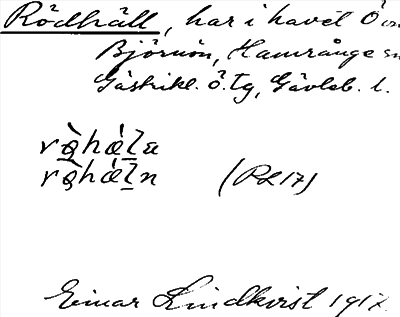 Rödhäll, har i havet Ö om
Björnön, Hamrånge sn
Gästrikl. ö. tg, Gävleb. l.
rö̀hǽl̲a
rö̀hǽl̲n (RL 17)
Einar Lindkvist 1917.